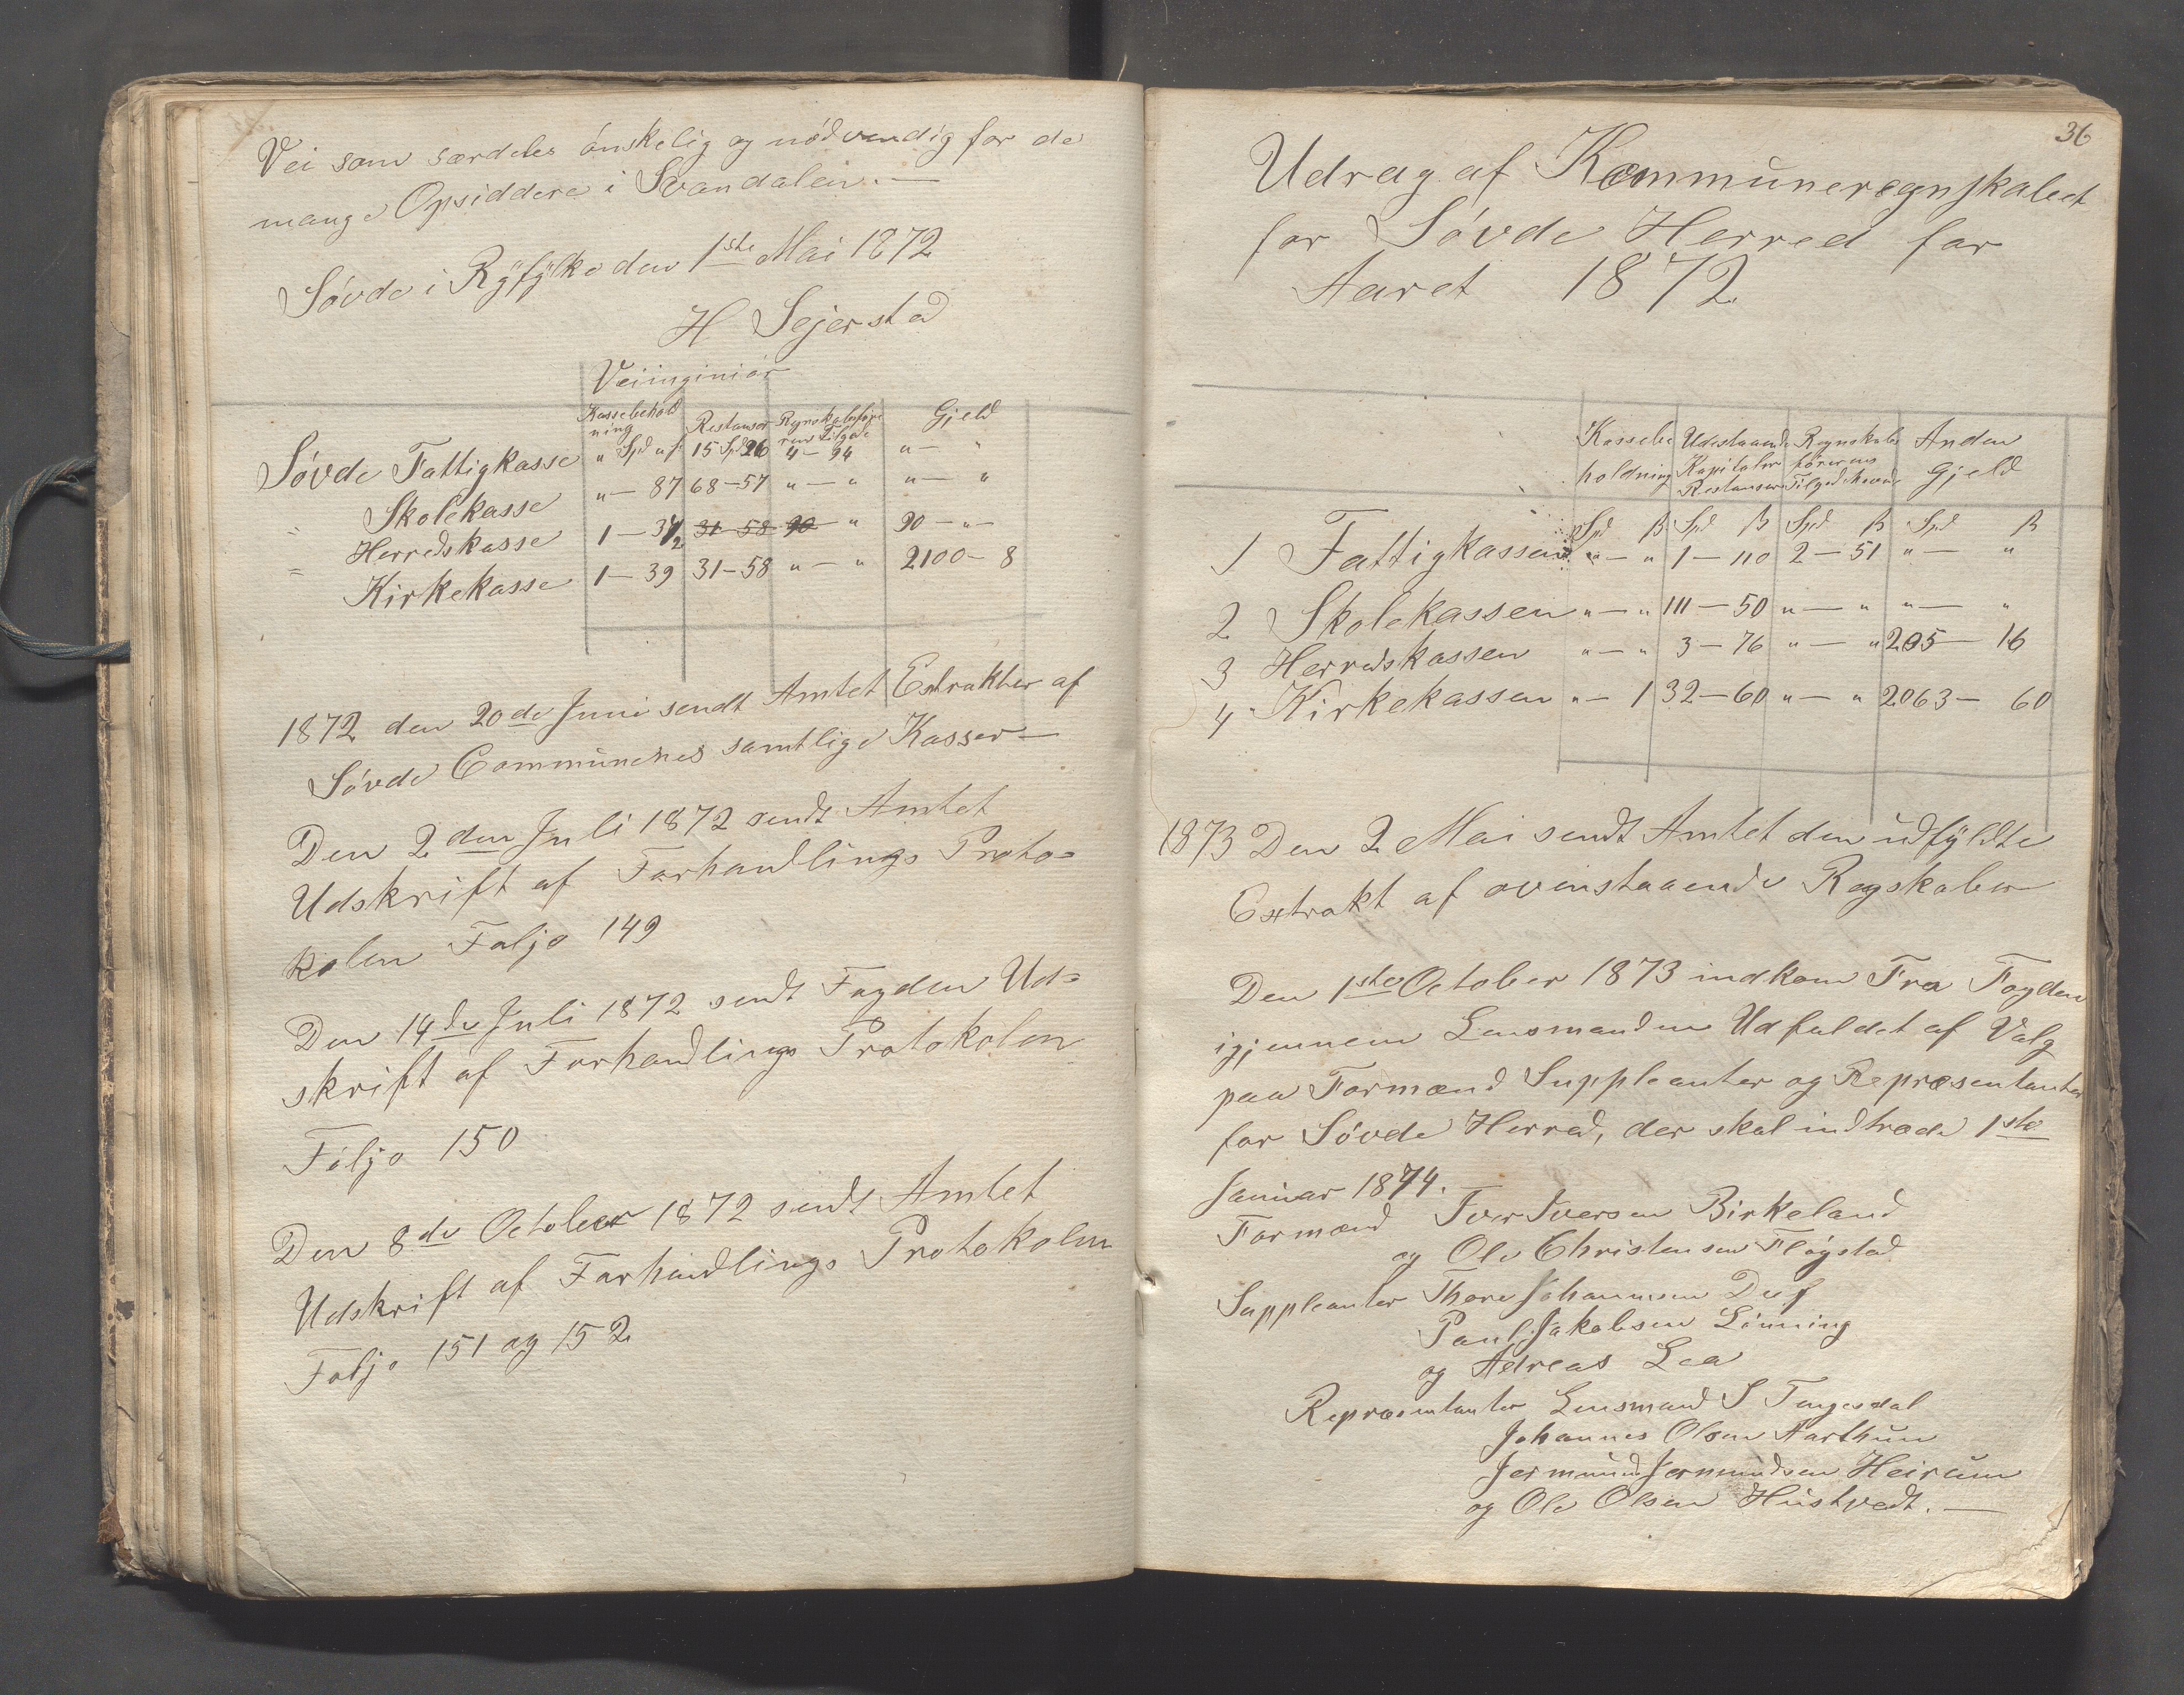 Vei som særdeles ónskelig og nódvendig for de
mange Opsiddere i Svandalen. —
Sóvde i Ryfylke den 1ste Mai 1872
H Sejersted
Veiinginiór
Kassebehold
ning Restanser Regnskabsföre
rens Tilgode Gjeld
Sóvde Fattigkasse " Spd " ß 15 Spd 26 4 — 94 " — "
" Skolekasse " — 87 68 — 57 " — " " — "
Herredskasse 1 — 37½ 31 — 58 90 — " 90 — " —
= Kirkekasse 1 — 39 31 — 58 " — " 2100 — 8
1872 den 20de Juni sendt Amtet Extrakter af
Sóvde Communenes samtlige Kasser —
Den 2den Juli 1872 sendt Amtet
Udskrift af Forhandlings Proto=
kolen Foljo 149
Den 14de Juli 1872 sendt Fogden Ud=
skrift af Forhandlings Protokolen
Foljo 150
Den 8de October 1872 sendt Amtet
Udskrift af Forhandlings Protokolen
Foljo 151 og 152
36
Udrag af Kommuneregnskabet
for Sóvde Herred for
Aaret 1872
Kassebe Udestaaende Regnskabs Anden
holdning Kapitaler förerens Gjeld
Restanser Tilgodehavende
Spd ß Spd ß Spd ß Spd ß
1 Fattigkassen " — " 1 — 110 2 — 51 " — "
2 Skolekassen " — " 111 — 50 " — " " — "
3 Herredskassen " — " 3 — 76 " — " 205 — 16
4 Kirkekassen " — 1 32 — 60 " — " 2063 — 60
1873 Den 2 Mai sendt Amtet den udfyldte
Extrakt af ovenstaaende Regskaber
Den 1ste October 1873 indkom Fra Fogden
igjennem Lensmanden Udfaldet af Valg
paa Formænd Suppleanter og Repræsentanter
for Sóvde Herred, der skal indtræde 1ste
Januar 1874.
Formænd Iver Iversen Birkeland
og Ole Christensen Flógstad
Suppleanter Thore Johannesen
Paul Jakobsen Lónning
og Adreas Lea
Repræsentanter Lensmand S Tengesdal
Johannes Olsen Aarthun
Jermund Jermundsen Heirum
og Ole Olsen Hustvedt. —